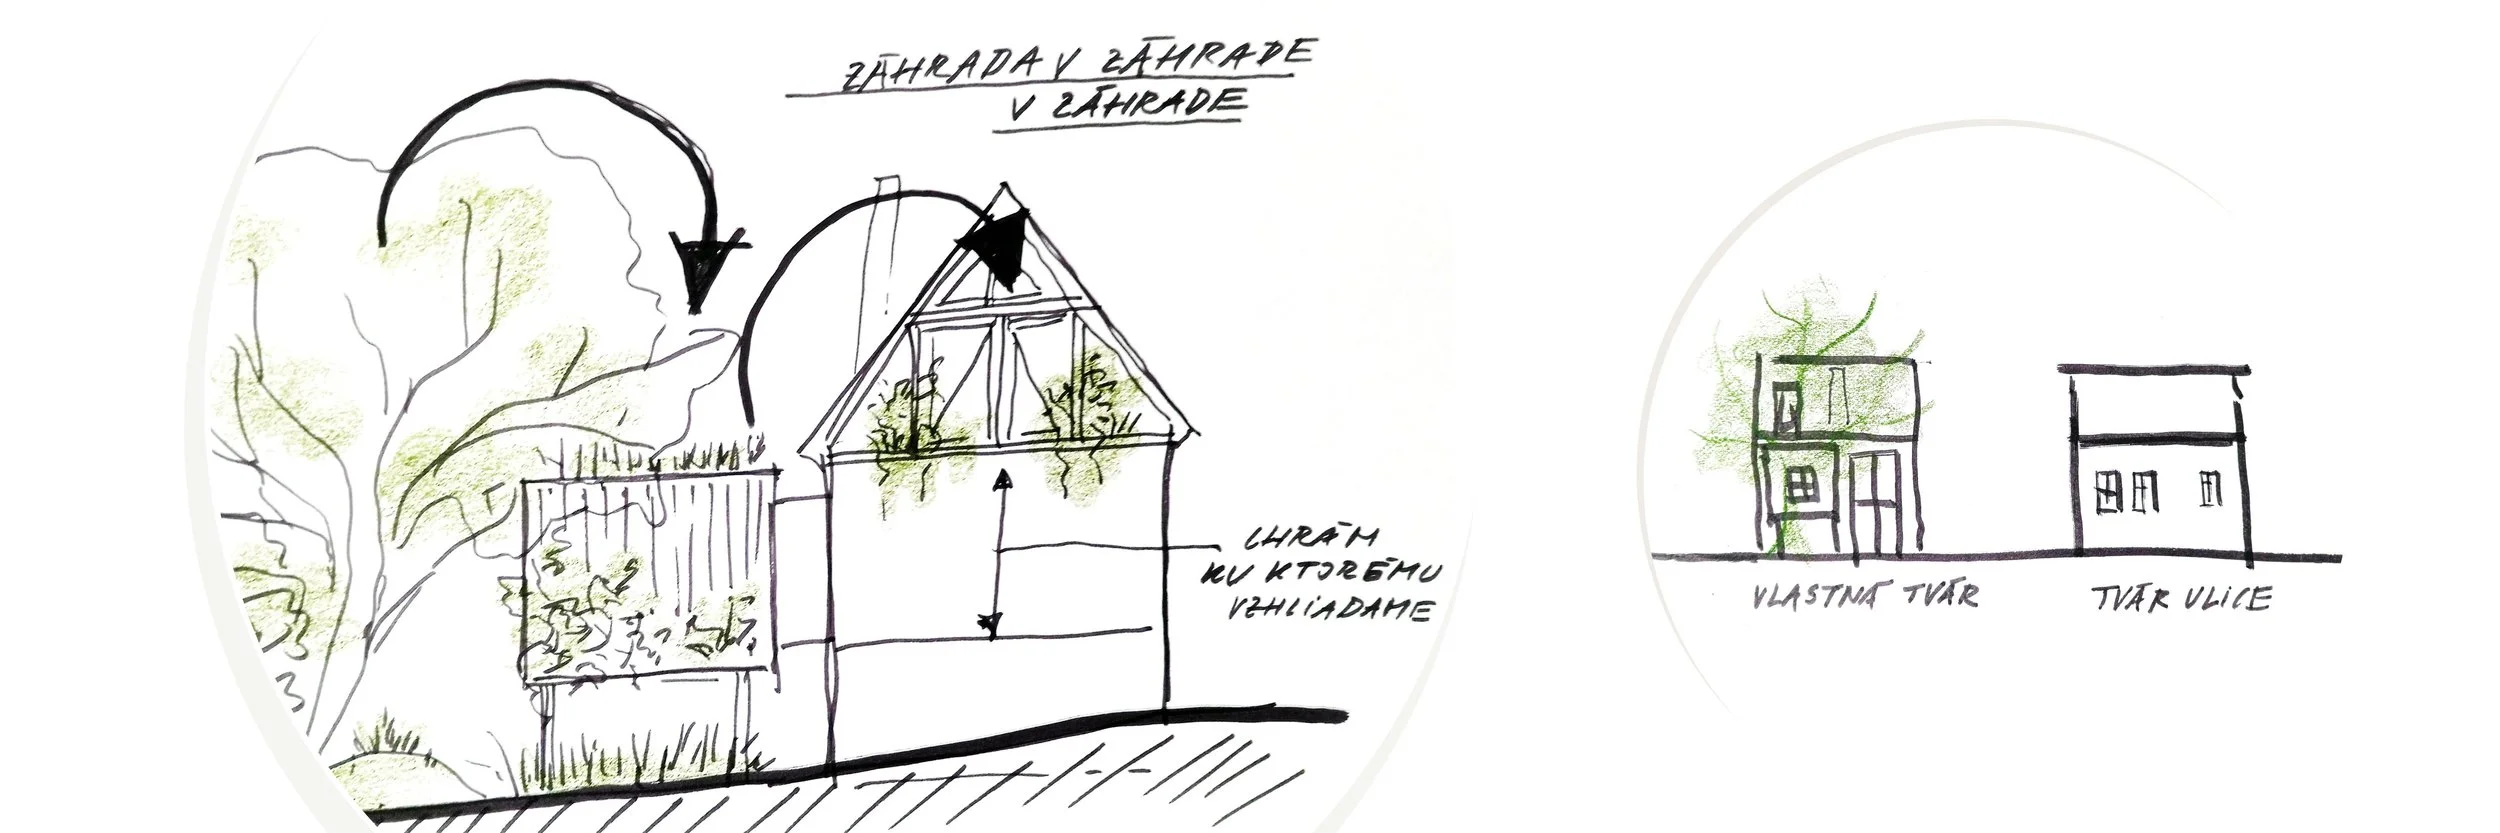 ZÁHRADA V ZÁHRADE
V ZÁHRADE
CHRÁM
KU KTORÉMU
VZHLIADAME
VLASTNÁ TVÁR
TVÁR ULICE